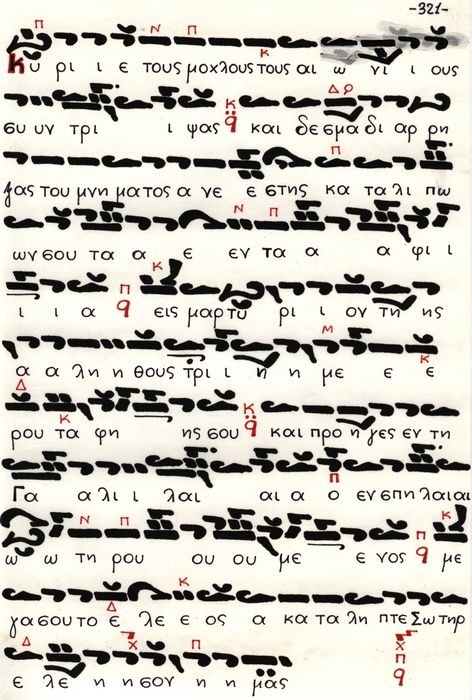 -321-
Κυ ρι ι ε τους μοχλους τους αι ω νι ι ους
συ υν τρι ι ψας και δε σμα δι αρ ρη
ξας του μνη ματος α νε ε στης κα τα λι πω
ων σου τα α ε εν τα α α φι ι
ι ι α εις μαρ τυ ρι ι ον τη ης
α α λη η θους τρι ι η η με ε ε
ρου τα φη ης σου και προ η γες εν τη
Γα α λι ι λαι αι α ο εν σπη λαι αι
ω ω τη ρου ου ου με ε νος με
γα σου το ε λε ε ος α κα τα λη πτε Σω τηρ
ε λε η σον η η μας